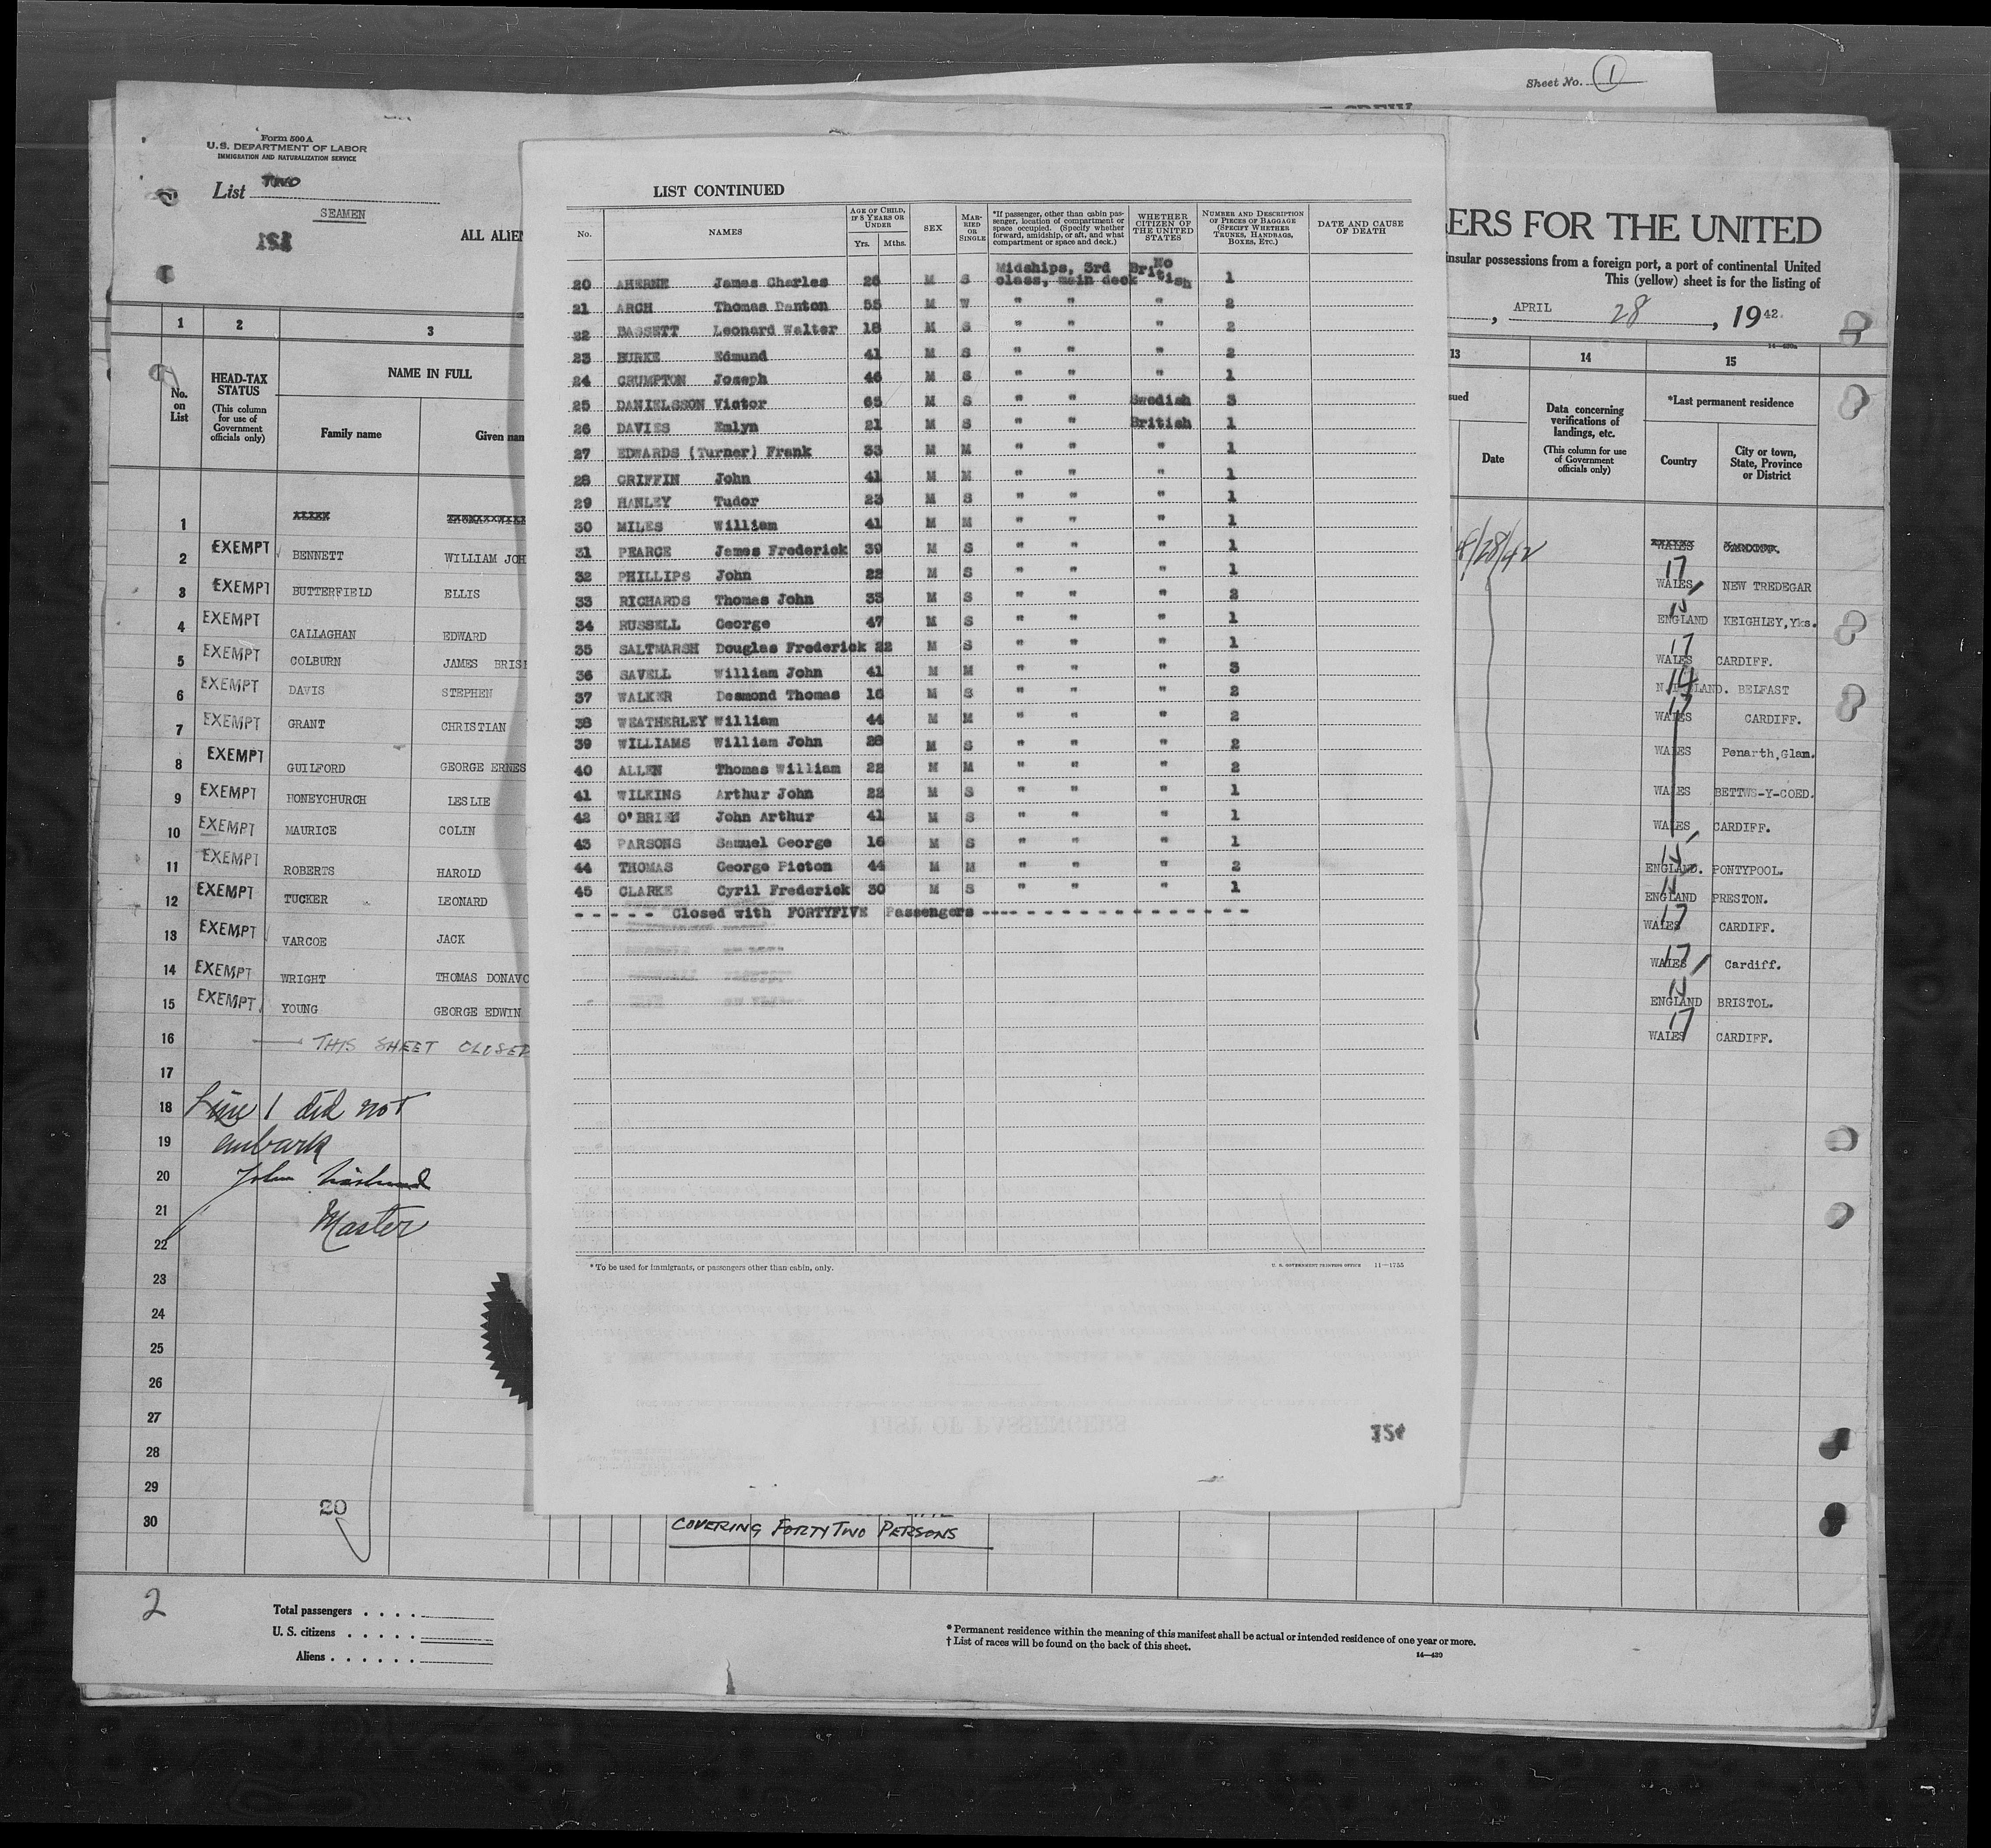 Sheet No. 1
Form 500 A
U.S. DEPARTMENT OF LABOR
IMMIGRATION AND NATURALIZATION SERVICE
List TWO
SEAMEN
ALL ALIEN
ERS FOR THE UNITED
insular possessions from a foreign port, a port of continental United
This (yellow) sheet is for the listing of
, APRIL 28, 1942.
14—420a
1 2 3
No. on List
HEAD-TAX STATUS
(This column for use of Government officials only)
NAME IN FULL
Family name Given nam
1
2 EXEMPT BENNETT WILLIAM JOH
3 EXEMPT BUTTERFIELD ELLIS
4 EXEMPT CALLAGHAN EDWARD
5 EXEMPT COLBURN JAMES BRISI
6 EXEMPT DAVIS STEPHEN
7 EXEMPT GRANT CHRISTIAN
8 EXEMPT GUILFORD GEORGE ERNES
9 EXEMPT HONEYCHURCH LESLIE
10 EXEMPT MAURICE COLIN
11 EXEMPT ROBERTS HAROLD
12 EXEMPT TUCKER LEONARD
13 EXEMPT VARCOE JACK
14 EXEMPT WRIGHT THOMAS DONAVO
15 EXEMPT YOUNG GEORGE EDWIN
16 THIS SHEET CLOSED
17
18 Line 1 did not
19 embark
20 John
21 Master
22
23
24
25
26
27
28
29
30
20
COVERING FORTY TWO PERSONS
2
Total passengers . . . .
U. S. citizens . . . . .
Aliens . . . . . .
* Permanent residence within the meaning of this manifest shall be actual or intended residence of one year or more.
† List of races will be found on the back of this sheet.
14—420
LIST CONTINUED
No.
NAMES
AGE OF CHILD, IF 8 YEARS OR UNDER
Yrs. Mths.
SEX
MARRIED OR SINGLE
*If passenger, other than cabin passenger, location of compartment or space occupied. (Specify whether forward, amidship, or aft, and what compartment or space and deck.)
WHETHER CITIZEN OF THE UNITED STATES
NUMBER AND DESCRIPTION OF PIECES OF BAGGAGE (SPECIFY WHETHER TRUNKS, HANDBAGS, BOXES, ETC.)
DATE AND CAUSE OF DEATH
20 AHERNE James Charles 26 M S Midships, 3rd class, main deck No British 1
21 ARCH Thomas Danton 55 M W " " " 2
22 BASSETT Leonard Walter 18 M S " " " 2
23 BURKE Edmund 41 M S " " " 2
24 CRUMPTON Joseph 46 M S " " " 1
25 DANIELSSON Victor 65 M S " " Swedish 3
26 DAVIES Emlyn 21 M S " " British 1
27 EDWARDS (Turner) Frank 33 M M " " " 1
28 GRIFFIN John 41 M M " " " 1
29 HANLEY Tudor 23 M S " " " 1
30 MILES William 41 M M " " " 1
31 PEARCE James Frederick 39 M S " " " 1
32 PHILLIPS John 22 M S " " " 1
33 RICHARDS Thomas John 33 M S " " " 2
34 RUSSELL George 47 M S " " " 1
35 SALTMARSH Douglas Frederick 22 M S " " " 1
36 SAVELL William John 41 M M " " " 3
37 WALKER Desmond Thomas 16 M S " " " 2
38 WEATHERLEY William 44 M M " " " 2
39 WILLIAMS William John 28 M S " " " 2
40 ALLEN Thomas William 22 M M " " " 2
41 WILKINS Arthur John 22 M S " " " 1
42 O'BRIEN John Arthur 41 M S " " " 1
43 PARSONS Samuel George 16 M S " " " 1
44 THOMAS George Picton 44 M M " " " 2
45 CLARKE Cyril Frederick 30 M S " " " 1
- - - - - Closed with FORTYFIVE Passengers - - - - - - - - - - - - - - - -
* To be used for immigrants, or passengers other than cabin, only.
U. S. GOVERNMENT PRINTING OFFICE 11—1755
13 14 15
sued
Date
Data concerning verifications of landings, etc.
(This column for use of Government officials only)
*Last permanent residence
Country
City or town, State, Province or District
4/28/42
WALES
17 WALES NEW TREDEGAR
14 ENGLAND KEIGHLEY, Yks.
17 WALES CARDIFF.
14 BELFAST
17 WALES CARDIFF.
WALES Penarth, Glam.
WALES BETTWS-Y-COED.
WALES CARDIFF.
14 ENGLAND. PONTYPOOL.
14 ENGLAND PRESTON.
17 WALES CARDIFF.
17 WALES Cardiff.
14 ENGLAND BRISTOL.
17 WALES CARDIFF.